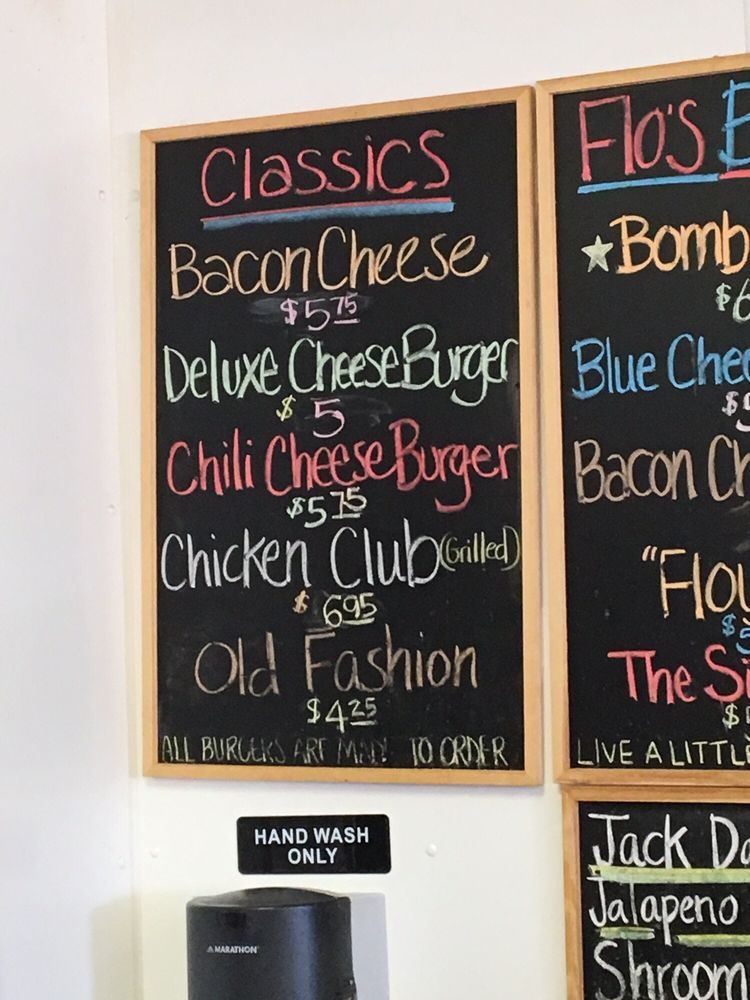 Classics
Bacon Cheese
$5 75
Deluxe Cheese Burger
$5
Chili Cheese Burger
$5 75
Chicken Club (Grilled)
$6 95
Old Fashion
$4 25
ALL BURGERS ARE MADE TO ORDER
Flo's
Bomb
$6
Blue Chee
Bacon Ch
"Flo
$5
The Si
$
LIVE A LITTLE
Jack Da
Jalapeno
Shroom
HAND WASH
ONLY
MARATHON